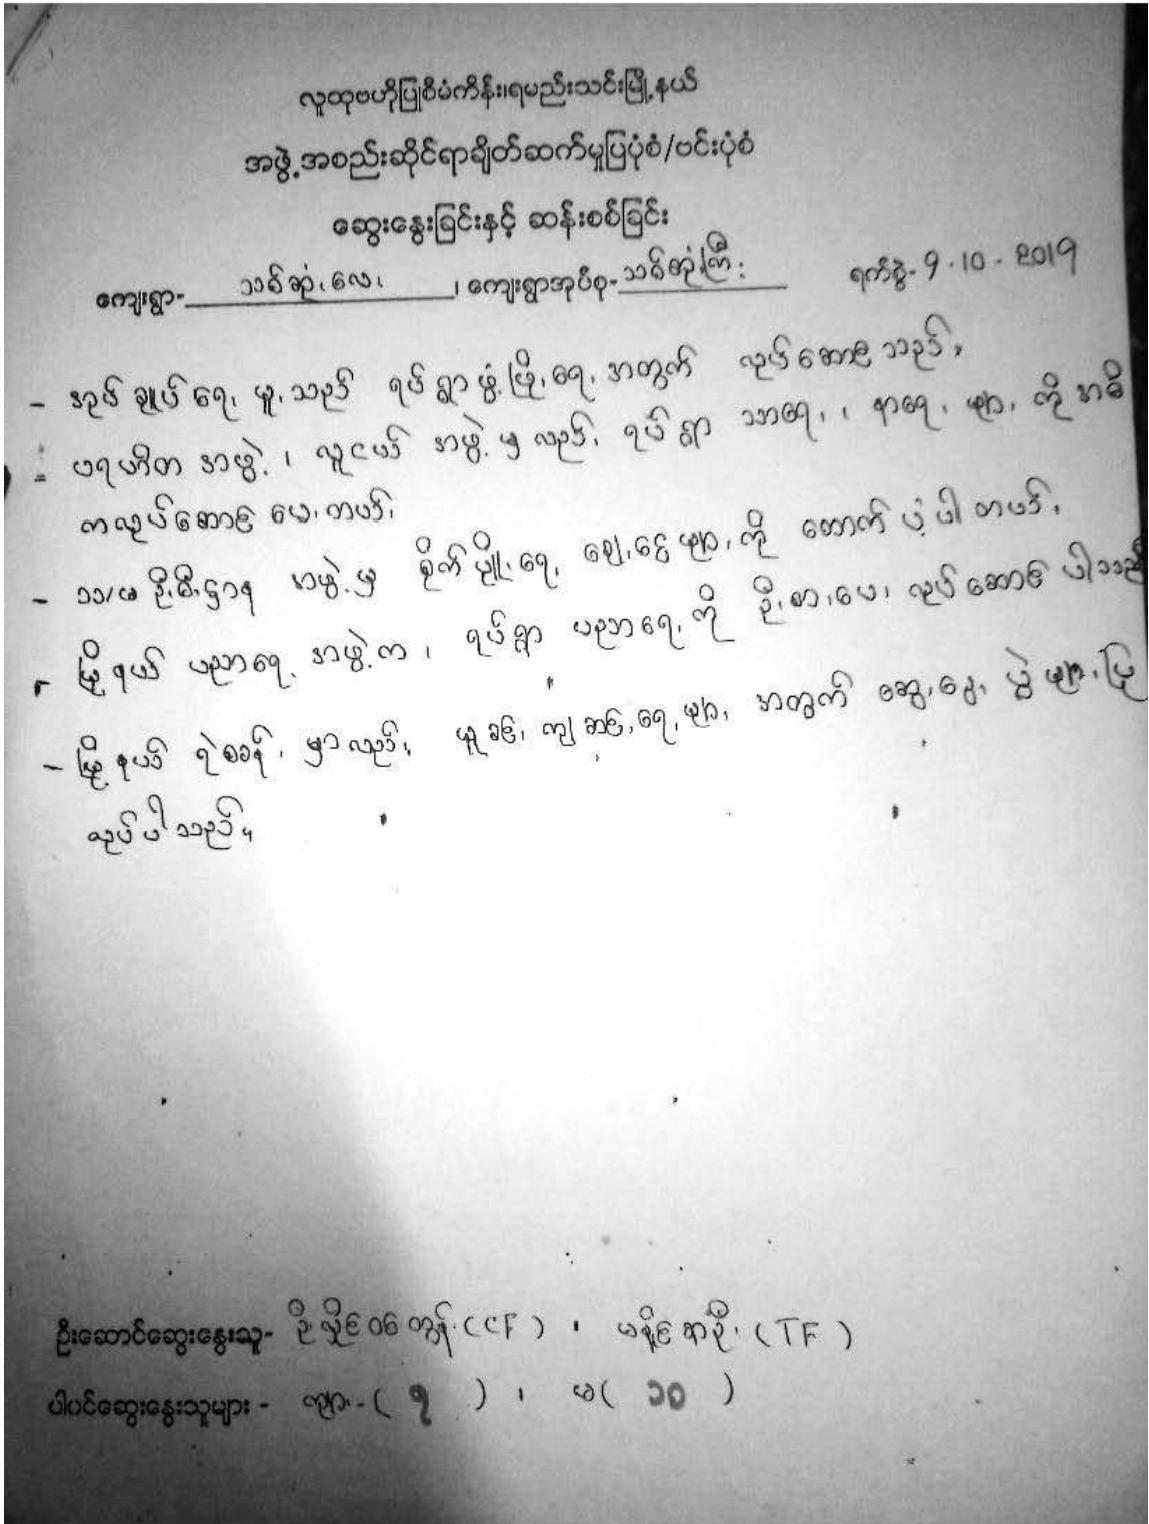 လူထုဗဟိုပြုစီမံကိန်း၊ရမည်းသင်းမြို့နယ်
အဖွဲ့အစည်းဆိုင်ရာချိတ်ဆက်မှုပြပုံစံ/ဗင်းပုံစံ
ဆွေးနွေးခြင်းနှင့် ဆန်းစစ်ခြင်း
ကျေးရွာ- သစ်ဆုံးလေး ၊ ကျေးရွာအုပ်စု- သစ်ဆုံးကြီး ရက်စွဲ- 9.10.2019
- အုပ်ချုပ်ရေးမှူးသည် ရပ်ရွာဖွံ့ဖြိုးရေးအတွက် လုပ်ဆောင်သည်။
- ပရဟိတအဖွဲ့၊ လူငယ်အဖွဲ့မှလည်း ရပ်ရွာ သာရေး၊ နာရေးများကို အဓိ
ကလုပ်ဆောင်ပေးတယ်။
- သ/မ ဦးစီးဌာန အဖွဲ့မှ စိုက်ပျိုးရေး ချေးငွေများကို ထောက်ပံ့ပါတယ်။
- မြို့နယ် ပညာရေးအဖွဲ့က၊ ရပ်ရွာ ပညာရေးကို ဦးစားပေး လုပ်ဆောင်ပါသည်
- မြို့နယ် ရဲစခန်းမှလည်း မူးခင်း ကျဆင်းရေးများ အတွက် ဆွေးနွေးပွဲများပြု
လုပ်ပါသည်။
ဦးဆောင်ဆွေးနွေးသူ- ဦးလှိုင်ဝင်းထွန်း (CF) ၊ မနှိုင်းစာဦး (TF)
ပါဝင်ဆွေးနွေးသူများ - ကျား-( ၇ ) ၊ မ( ၁၀ )